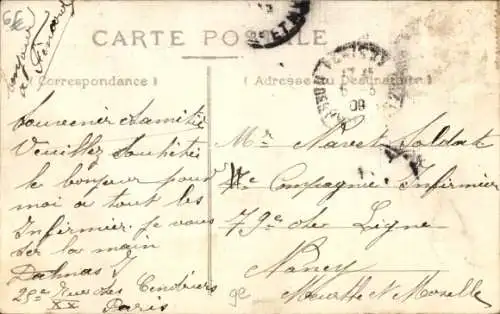 bonjour
a Pénard
CARTE POSTALE
( Correspondance )
( Adresse du Destinataire )
Souvenir d'amitié
Veuillez souhaiter
le bonjour pour
moi a tout les
Infirmier. je vous
ser la main
Dalmas J
25e Rue des Cendriers
XX
Paris
Mr Navet Soldat
4e Compagnie Infirmier
79e de Ligne
Nancy
Meurthe et Moselle